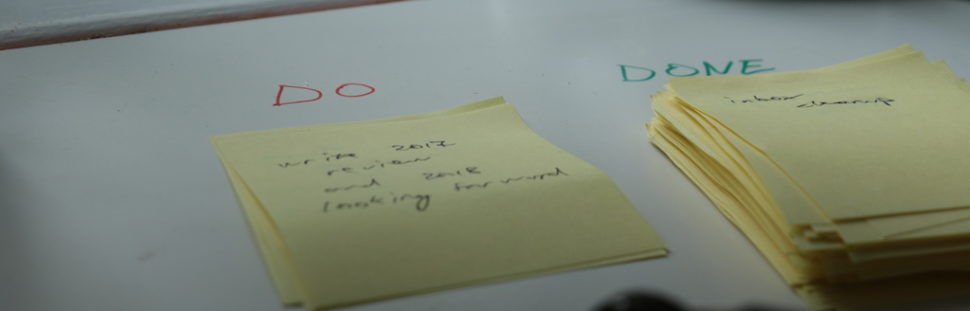 DO
write 2017
review
and 2018
looking forward
DONE
inbox
cleanup